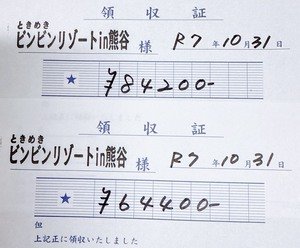 領収証
ときめき
ビンビンリゾートin熊谷 様 R7年10月31日
★ ¥84200-
領収証
ときめき
ビンビンリゾートin熊谷 様 R7年10月31日
★ ¥64400-
但
上記正に領収いたしました